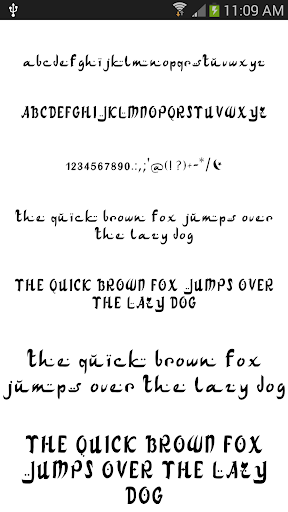 11:09 AM
abcdefghijklmnopqrstuvwxyz
ABCDEFGHIJKLMNOPQRSTUVWXYZ
1234567890.:,;'@(!?)+-*/
the quick brown fox jumps over
the lazy dog
THE QUICK BROWN FOX JUMPS OVER
THE LAZY DOG
the quick brown fox
jumps over the lazy dog
THE QUICK BROWN FOX
JUMPS OVER THE LAZY
DOG